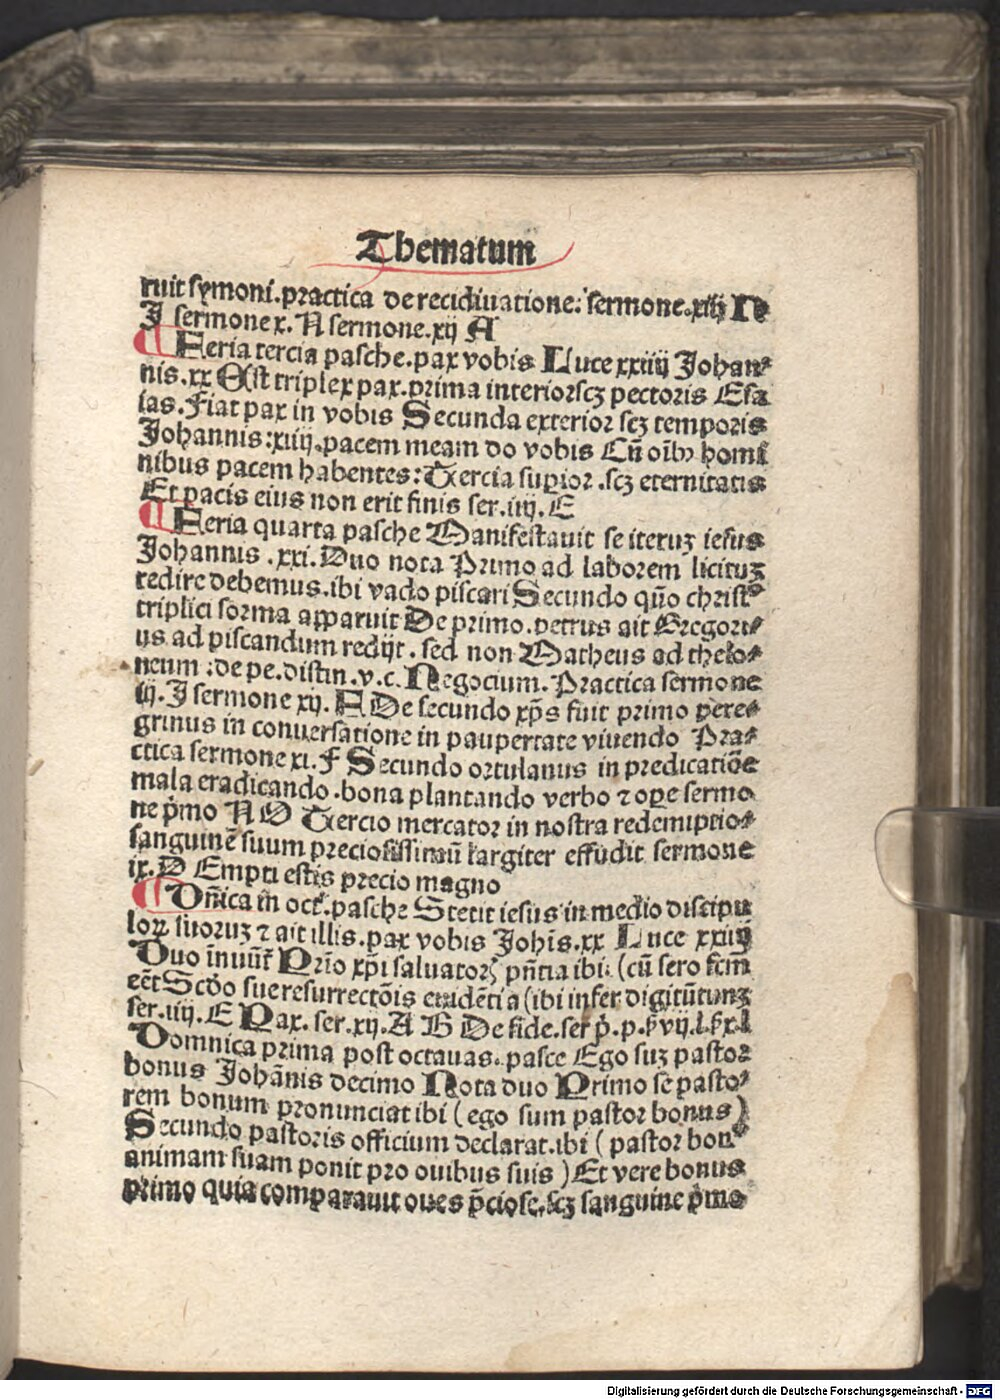 Thematum
ruit symoni.practica de recidiuatione: sermone.xiiij N
J sermone x. N sermone.xij A
¶ Feria tercia pasche.pax vobis Luce xxiiij Johan⸗
nis.xx Est triplex pax.prima interior scꝫ pectoris Esa
ias.Fiat pax in vobis Secunda exterior scꝫ temporis
Johannis:xiiij.pacem meam do vobis Cū oībꝰ homi
nibus pacem habentes: Tercia supior .scꝫ eternitatis
Et pacis eius non erit finis ser.iiij.E
¶ Feria quarta pasche Manifestauit se iteruꝫ iesus
Johannis .xxi.Duo nota Primo ad laborem licituꝫ
redire debemus.ibi vado piscari Secundo quō christꝰ
triplici forma apparuit De primo.petrus ait Gregori⸗
us ad piscandum redijt. sed non Matheus ad thelo⸗
neum :de pe.distin.v.c.Negocium. Practica sermone
iij. J sermone xij. A De secundo xp̄s fuit primo pere⸗
grinus in conuersatione in paupertate viuendo Pra⸗
ctica sermone xi.F Secundo ortulanus in predicatiōe
mala eradicando .bona plantando verbo ⁊ ope sermo
ne p̄mo N O Tercio mercator in nostra redemptio⸗
sanguinē suum preciosissimū largiter effudit sermone
ix.D Empti estis precio magno
¶ Dn̄ica in oct̄.pasche Stetit iesus in medio discipu
loꝝ suoruꝫ ⁊ ait illis.pax vobis Joh̄is.xx Luce xxiiij
Duo inuūt̄ Prīo xp̄i saluatorꝭ pn̄tia ibi. (cū sero
eēt Scd̄o sue resurrectōis euidētia (ibi infer digitū tuuꝫ
ser.iiij.E Pax. ser.xij.A B De fide.ser
Domnica prima post octauas. pasce Ego suꝫ pastor
bonus Johānis decimo Nota duo Primo se pasto⸗
rem bonum pronunciat ibi (ego sum pastor bonus)
Secundo pastoris officium declarat.ibi ( pastor bonꝰ
animam suam ponit pro ouibus suis ) Et vere bonus
primo quia comparauit oues p̄ciose.scꝫ sanguine p̄mo
Digitalisierung gefördert durch die Deutsche Forschungsgemeinschaft - DFG